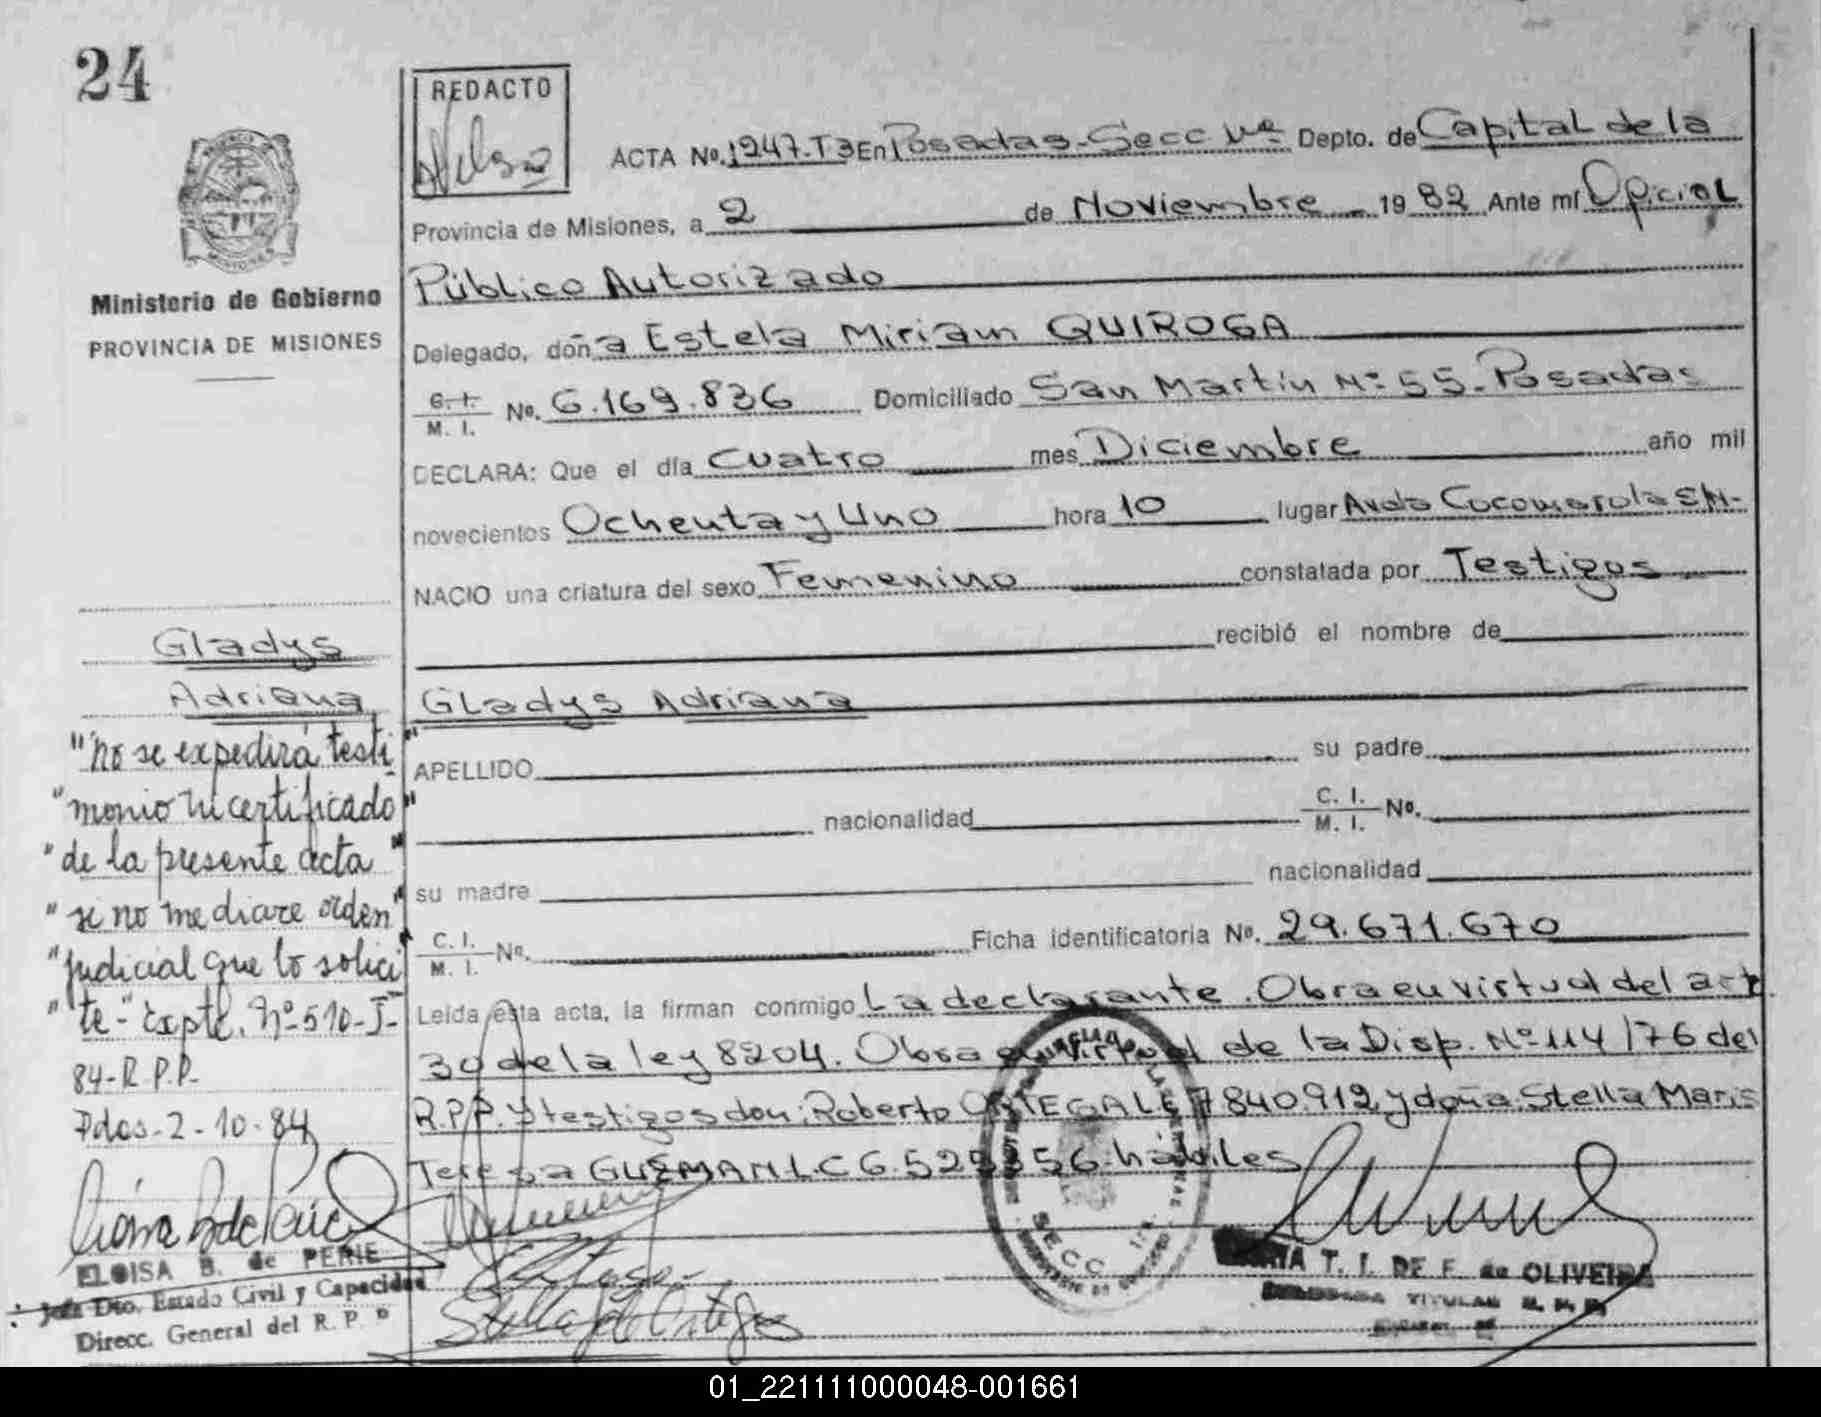 24
REDACTO
ACTA No. 1247.T3 En Posadas-Secc 1ra Depto. de Capital de la
Provincia de Misiones, a 2 de Noviembre 19 82 Ante mí Oficial
Público Autorizado
Delegado, doña Estela Miriam QUIROGA
C. I. / M. I. No. 6.169.836 Domiciliado San Martín Nº 55-Posadas
DECLARA: Que el día Cuatro mes Diciembre año mil
novecientos Ochenta y Uno hora 10 lugar Avda Cocomarola S/N-
NACIO una criatura del sexo Femenino constatada por Testigos
recibió el nombre de
Gladys Adriana
APELLIDO su padre
nacionalidad C. I. / M. I. No.
su madre nacionalidad
C. I. / M. I. No. Ficha identificatoria No. 29.671.670
Leída esta acta, la firman conmigo La declarante. Obra en virtud del art
30 de la ley 8204. Obra en virtud de la Disp. Nº 114/76 del
R.P.P. y testigos don: Roberto 7840.912 y doña Stella Maris
Teresa GUZMAN L.C 6. hábiles
MISIONES
Ministerio de Gobierno
PROVINCIA DE MISIONES
Gladys
Adriana
"No se expedirá testi"
"monio ni certificado"
"de la presente acta"
"si no mediare orden"
"judicial que lo solici
"te-" Expte. Nº 510-J-
84-R.P.P.-
Pdas-2-10-84
ELOISA B. de PERIE
Jefa Dto. Estado Civil y Capacidad
Direcc. General del R. P. P
SECC. 1ra
T. I. DE F. de OLIVEIRA
TITULAR
01_221111000048-001661